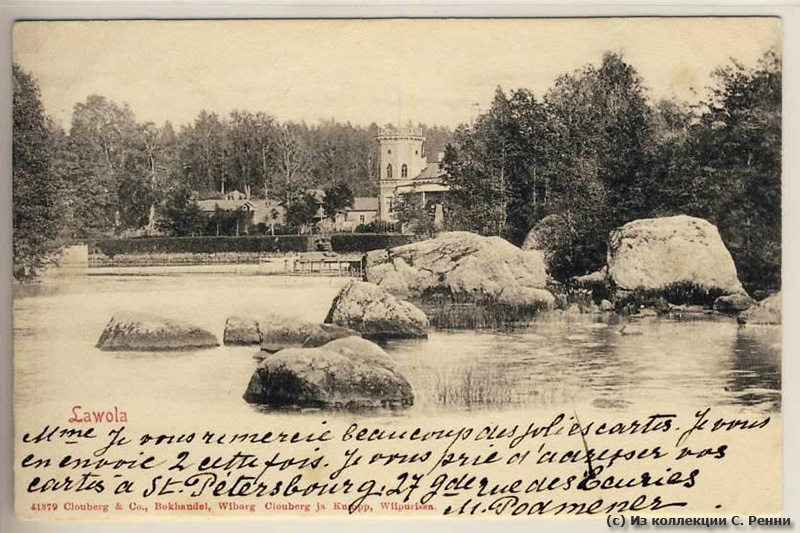 Lawola
Mme Je vous remercie beaucoup des jolies cartes. Je vous
en envoie 2 cette fois. Je vous prie d'adresser vos
cartes à St. Pétersbourg, 27 gde rue des Ecuries
M. Podmener
41879 Clouberg & Co., Bokhandel, Wiborg Clouberg ja Kumpp, Wiipurissa.
(c) Из коллекции С. Ренни